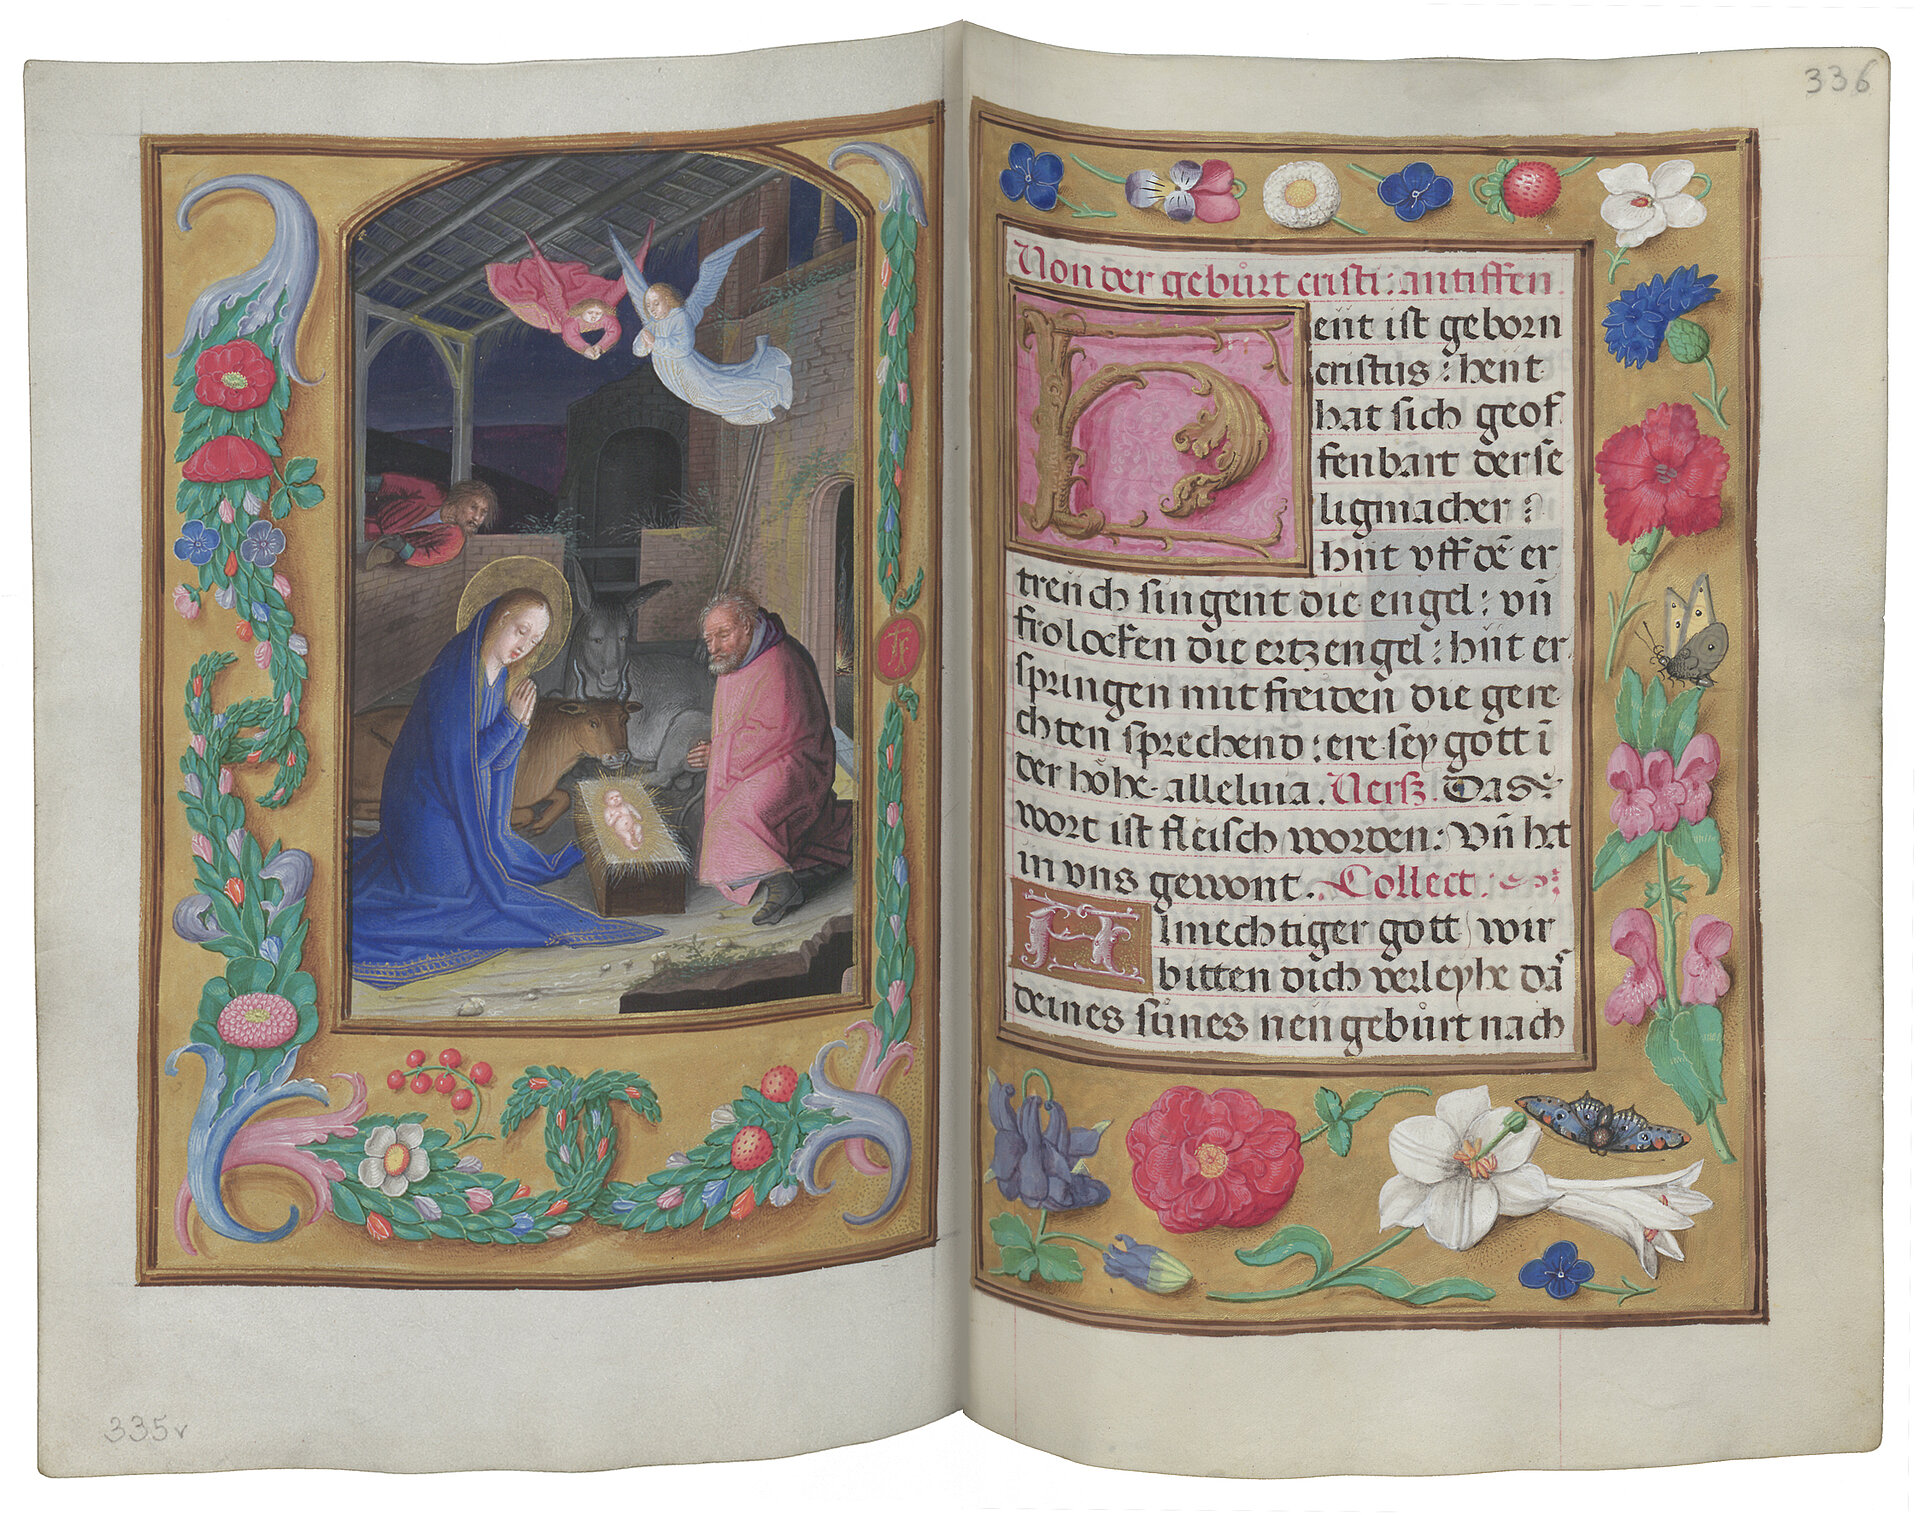 335v
336
Von der gebůrt cristi : antiffen
Heüt ist geborn
cristus : heut
hat sich geof
fenbart der se
ligmacher :
hüt vff dē er
treüch singent die engel : vn̄
frolocken die ertzengel : hüt er
springen mit freiden die gere
chten sprechend : ere sey gott ī
der höhe . alleluia . Versz . Das
wort ist fleisch worden : Vn̄ hat
in vns gewont . Collect .
Almechtiger gott wir
bitten dich verleyhe dā
deines sůnes neü gebůrt nach